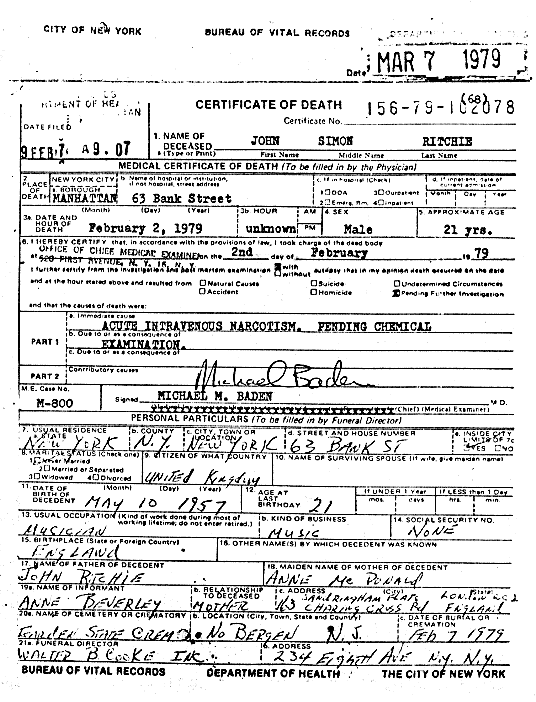 CITY OF NEW YORK BUREAU OF VITAL RECORDS
Date MAR 7 1979
CERTIFICATE OF DEATH 156-79-102078
(68)
Certificate No.
DATE FILED
9 FEB 7 A9.07
1. NAME OF DECEASED (Type or Print) JOHN SIMON RITCHIE
First Name Middle Name Last Name
MEDICAL CERTIFICATE OF DEATH (To be filled in by the Physician)
2. PLACE OF DEATH NEW YORK CITY a. BOROUGH MANHATTAN b. Name of hospital or institution, if not hospital, street address 63 Bank Street c. If in hospital (Check) 1 DOA 3 Outpatient 2 Emerg. Rm. 4 Inpatient d. If inpatient, date of current admission Month Day Year
3a. DATE AND HOUR OF DEATH (Month) (Day) (Year) February 2, 1979 3b HOUR unknown AM PM 4. SEX Male 5. APPROXIMATE AGE 21 yrs.
6. I HEREBY CERTIFY that, in accordance with the provisions of law, I took charge of the dead body
OFFICE OF CHIEF MEDICAL EXAMINER
at 520 FIRST AVENUE, N. Y. N. Y. on the 2nd day of February 1979
I further certify from the investigation and post mortem examination with without autopsy that in my opinion death occurred on the date
and at the hour stated above and resulted from Natural Causes Suicide Undetermined Circumstances
Accident Homicide Pending Further Investigation
and that the causes of death were:
PART 1 a. Immediate cause ACUTE INTRAVENOUS NARCOTISM. PENDING CHEMICAL
b. Due to or as a consequence of EXAMINATION.
c. Due to or as a consequence of
PART 2 Contributory causes
Michael Baden
M.E. Case No. M-800 Signed MICHAEL M. BADEN M.D.
(Chief) (Medical Examiner)
PERSONAL PARTICULARS (To be filled in by Funeral Director)
7. USUAL RESIDENCE a. STATE NEW YORK b. COUNTY N.Y. c. CITY, TOWN OR LOCATION NEW YORK d. STREET AND HOUSE NUMBER 63 BANK ST e. INSIDE CITY LIMITS OF 7c YES NO
8. MARITAL STATUS (Check one) 1 Never Married 2 Married or Separated 3 Widowed 4 Divorced 9. CITIZEN OF WHAT COUNTRY UNITED KINGDOM 10. NAME OF SURVIVING SPOUSE (If wife, give maiden name)
11. DATE OF BIRTH OF DECEDENT (Month) (Day) (Year) MAY 10 1957 12. AGE AT LAST BIRTHDAY 21 If UNDER 1 Year mos. days If LESS than 1 Day hrs. min.
13. USUAL OCCUPATION (Kind of work done during most of working lifetime; do not enter retired.) MUSICIAN b. KIND OF BUSINESS MUSIC 14. SOCIAL SECURITY NO. NONE
15. BIRTHPLACE (State or Foreign Country) ENGLAND 16. OTHER NAME(S) BY WHICH DECEDENT WAS KNOWN
17. NAME OF FATHER OF DECEDENT JOHN RITCHIE 18. MAIDEN NAME OF MOTHER OF DECEDENT ANNE McDONALD
19a. NAME OF INFORMANT ANNE BEVERLEY b. RELATIONSHIP TO DECEASED MOTHER c. ADDRESS (City) SANDRINGHAM FLATS LONDON WC2 CHARING CROSS Rd ENGLAND
20a. NAME OF CEMETERY OR CREMATORY GARDEN STATE CREM b. LOCATION (City, Town, State and Country) No BERGEN N.J. c. DATE OF BURIAL OR CREMATION FEB 7 1979
21a. FUNERAL DIRECTOR WALTER B COOKE INC. b. ADDRESS 234 EIGHTH AVE N.Y. N.Y.
BUREAU OF VITAL RECORDS DEPARTMENT OF HEALTH THE CITY OF NEW YORK